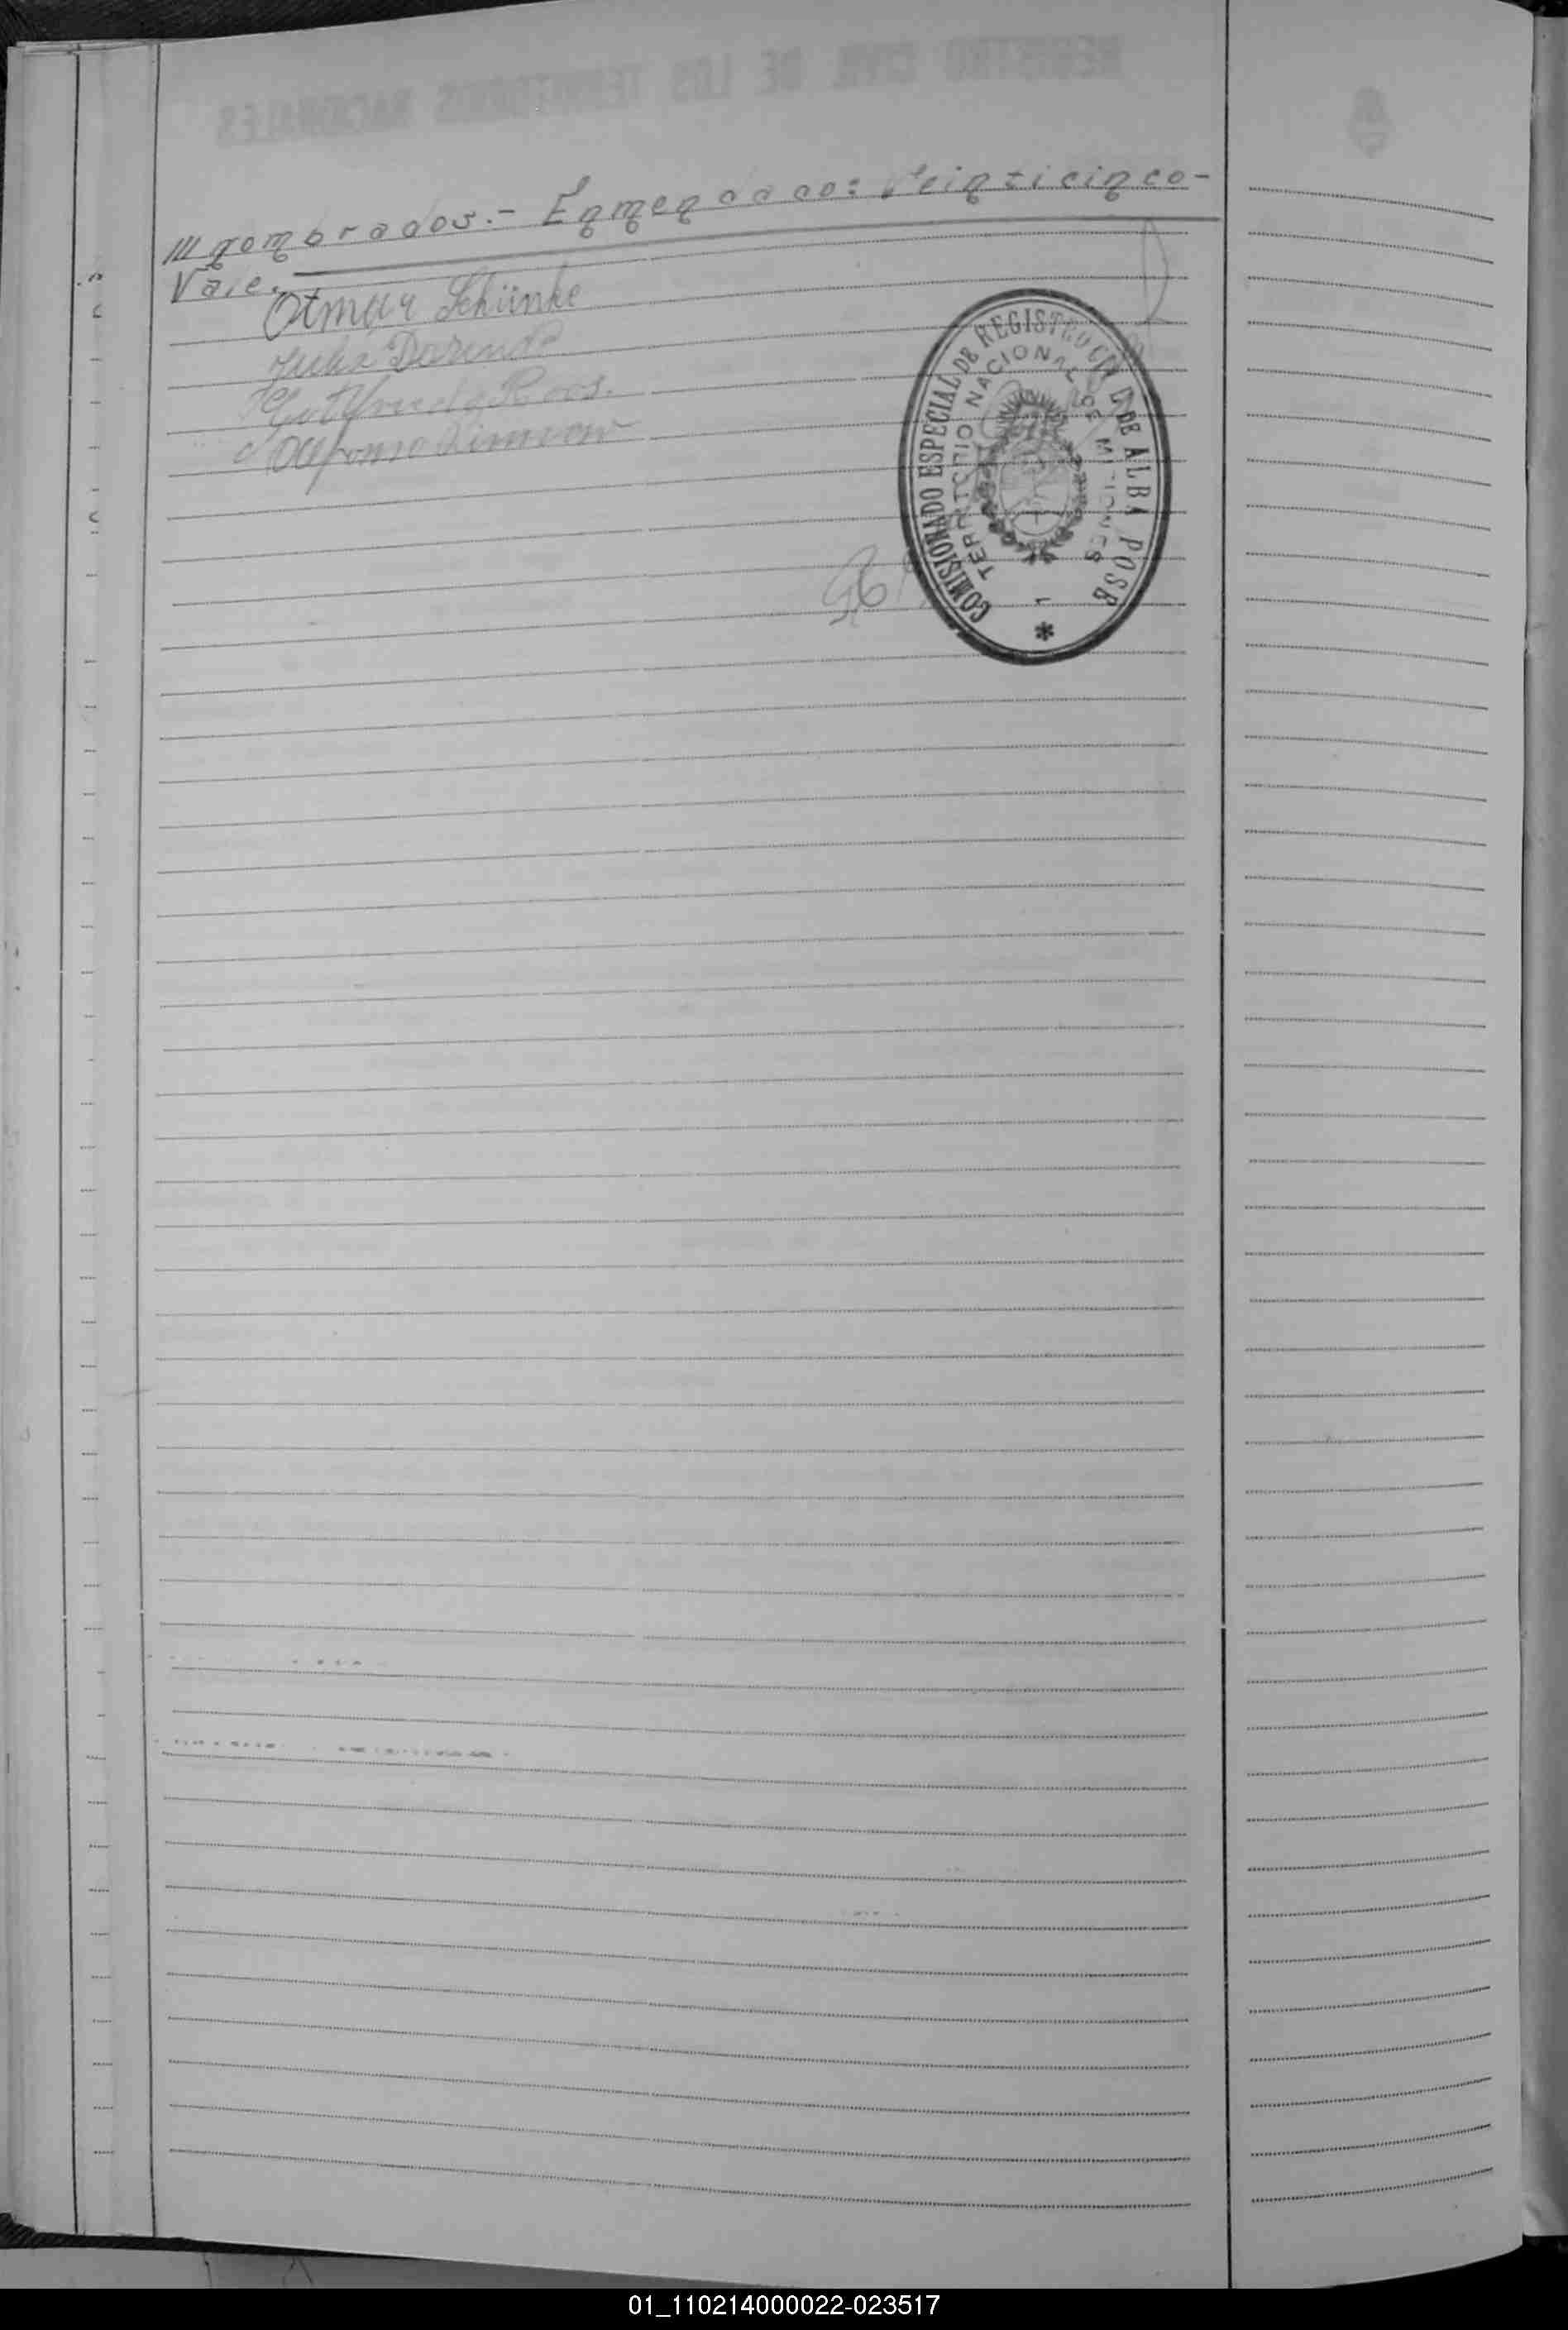 REGISTRO CIVIL DE LOS TERRITORIOS NACIONALES
/// nombrados.- Enmendado: Veinticinco-
Vale.
Otmar Schünke
Roos.
COMISIONADO ESPECIAL DE REGISTRO CIVIL DE ALBA POSE
TERRITORIO NACIONAL DE MISIONES
*
01_110214000022-023517